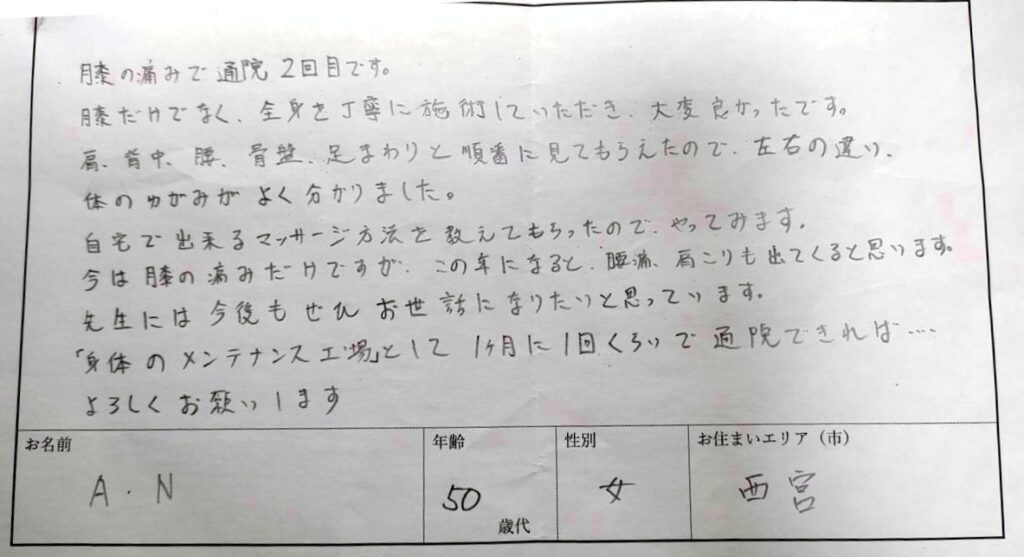 膝の痛みで通院2回目です。
膝だけでなく、全身を丁寧に施術していただき、大変良かったです。
肩、背中、腰、骨盤、足まわりと順番に見てもらえたので、左右の違い、
体のゆがみがよく分かりました。
自宅で出来るマッサージ方法を教えてもらったので、やってみます。
今は膝の痛みだけですが、この年になると、腰痛、肩こりも出てくると思います。
先生には今後もぜひお世話になりたいと思っています。
「身体のメンテナンス工場」として1ヶ月に1回くらいで通院できれば……
よろしくお願いします
お名前 年齢 性別 お住まいエリア（市）
A・N 50歳代 女 西宮